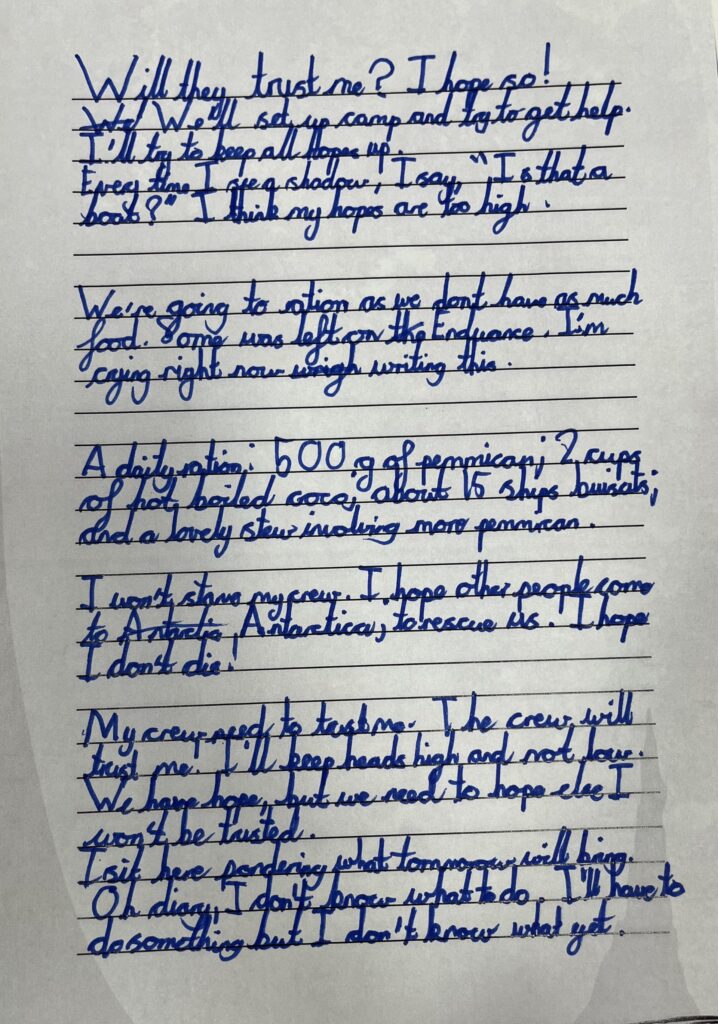 Will they trust me? I hope so!
We! We'll set up camp and try to get help.
I'll try to keep all hopes up.
Every time I see a shadow, I say, "Is that a
boat?" I think my hopes are too high.
We're going to ration as we dont have as much
food. Some was left on the Enduance. I'm
crying right now writing this.
A daity ration: 500 g of pemmican; 2 cups
of hot boiled coco; about 15 ships buisats;
and a lovely stew involving more pemmican.
I won't starve my crew. I hope other people come
to Antarctia Antarctica, to rescue us. I hope
I don't die!
My crew need to trust me. The crew will
trust me! I'll keep heads high and not low.
We have hope, but we need to hope else I
won't be trusted.
I sit here pondering what tommorow will bring.
Oh diary, I don't know what to do. I'll have to
do something but I don't know what yet.